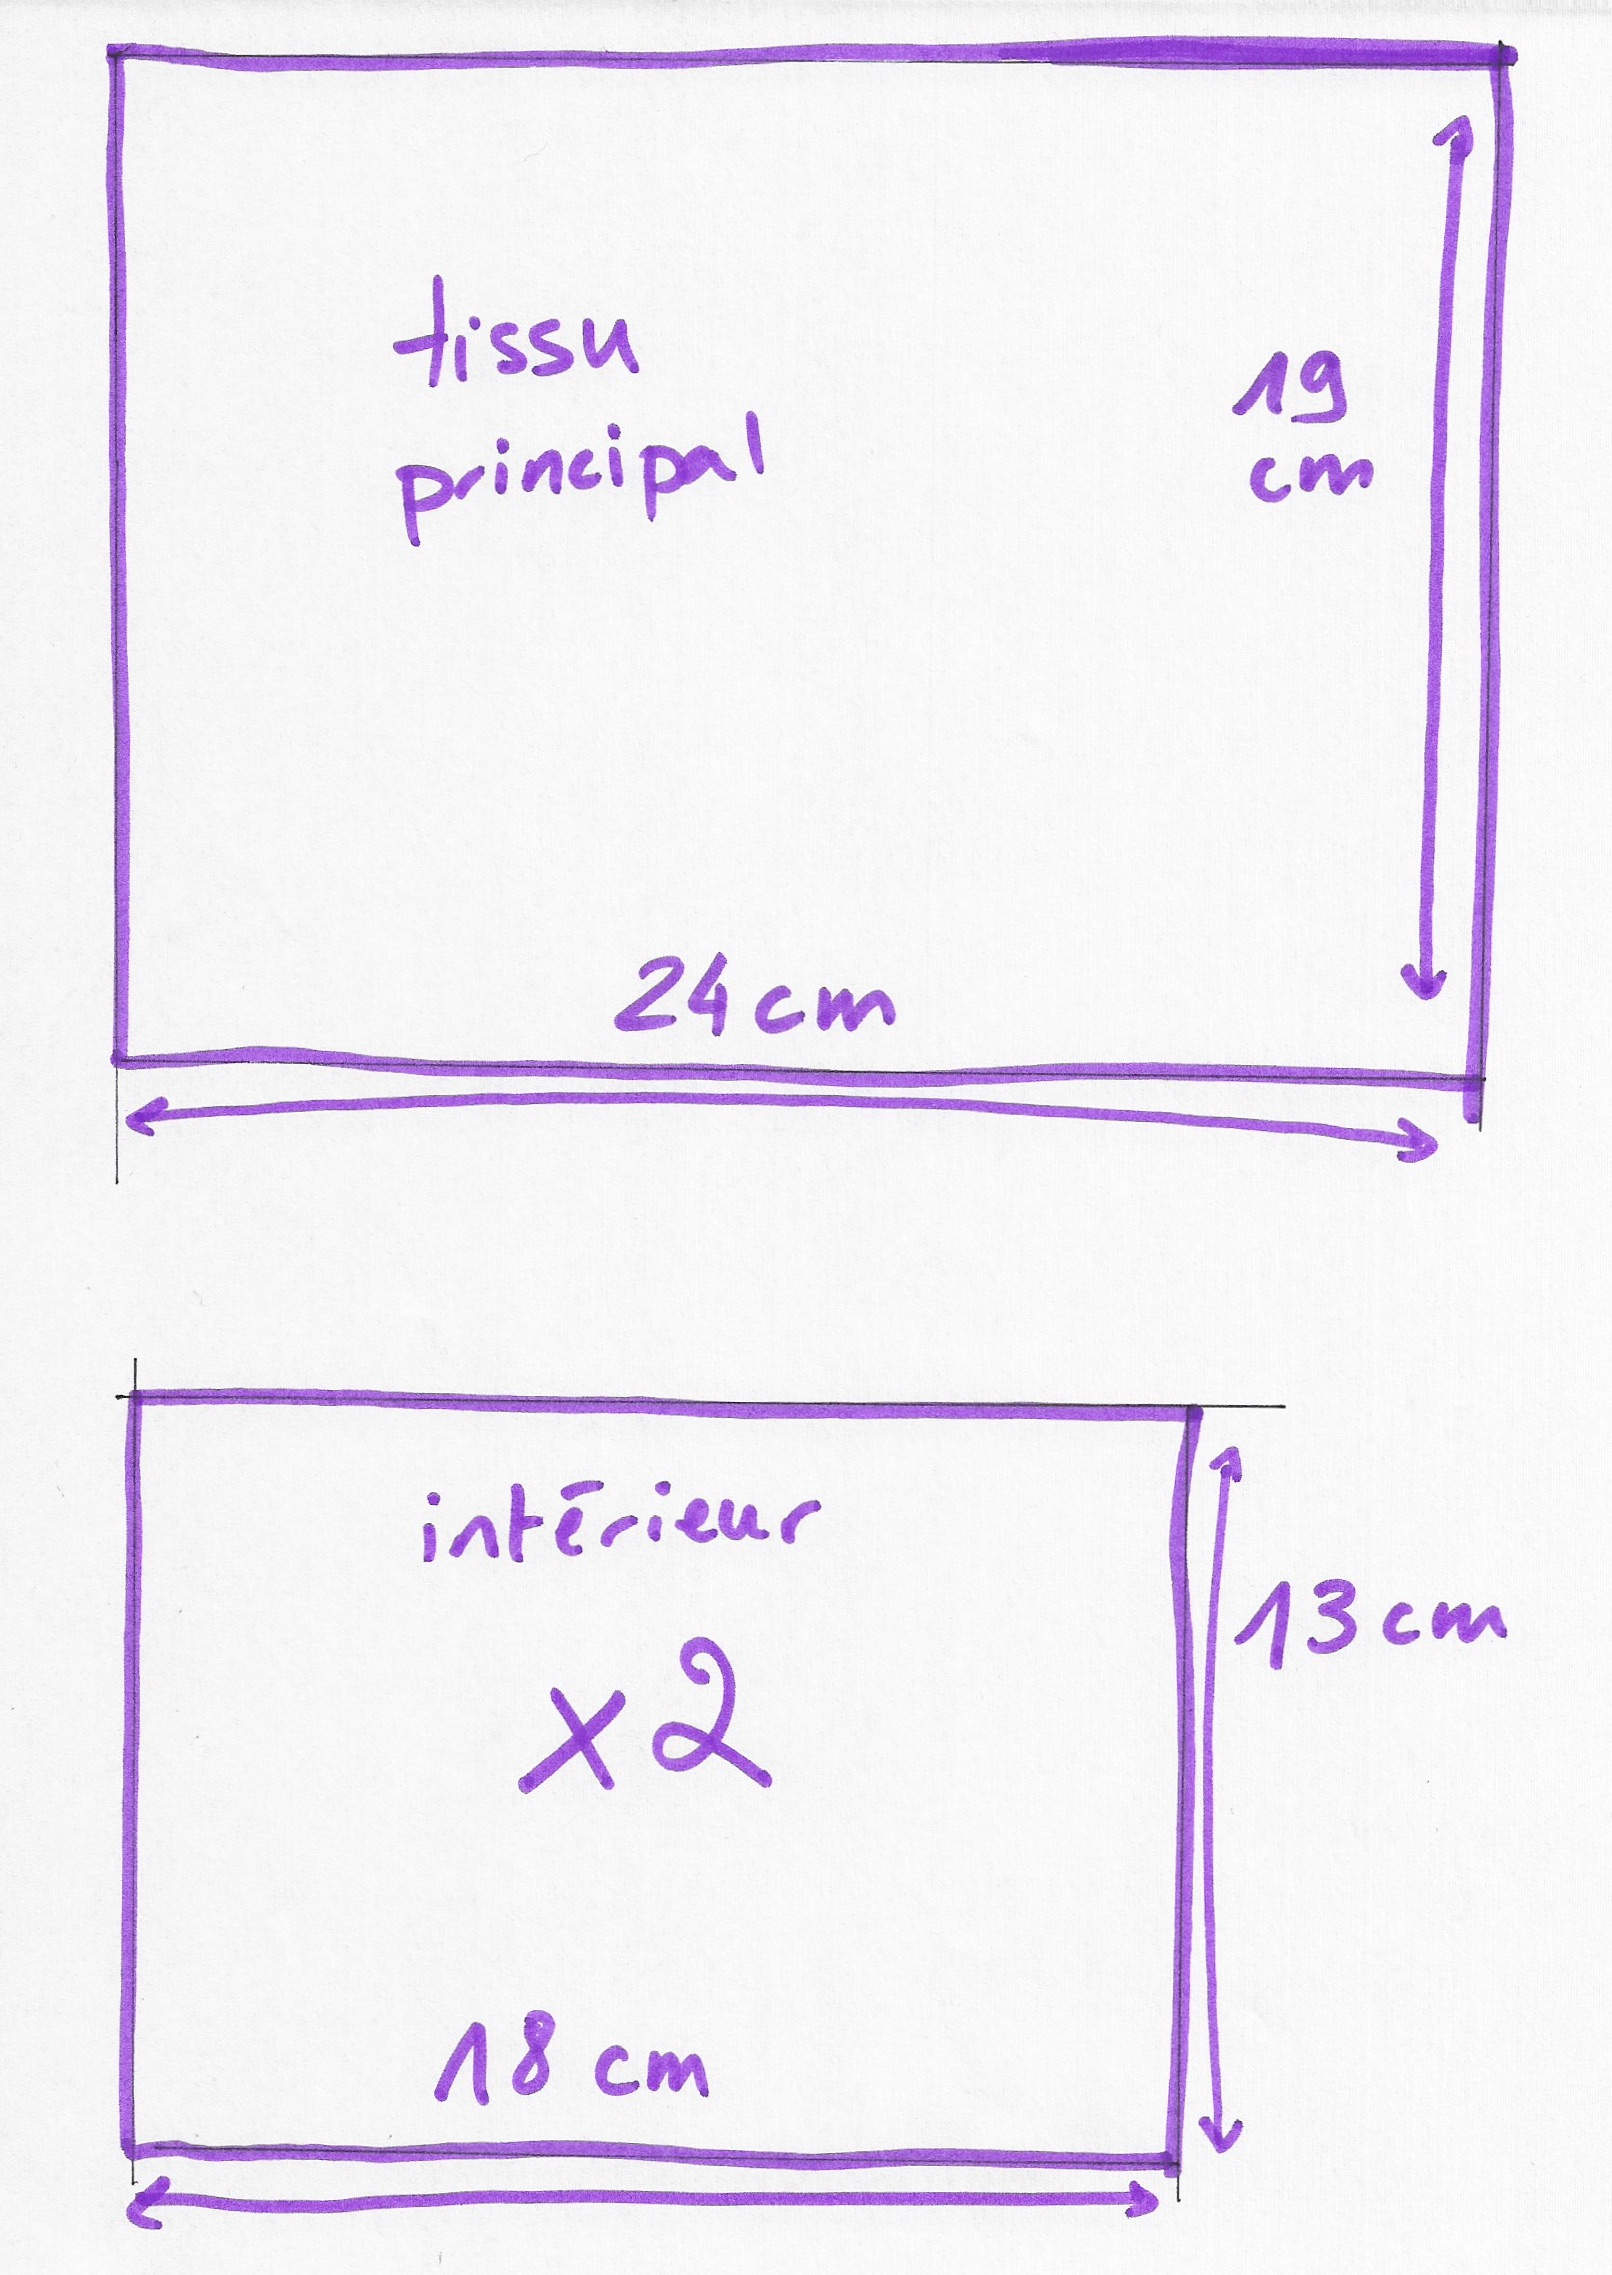 tissu
principal
19
cm
24 cm
intérieur
x2
13 cm
18 cm